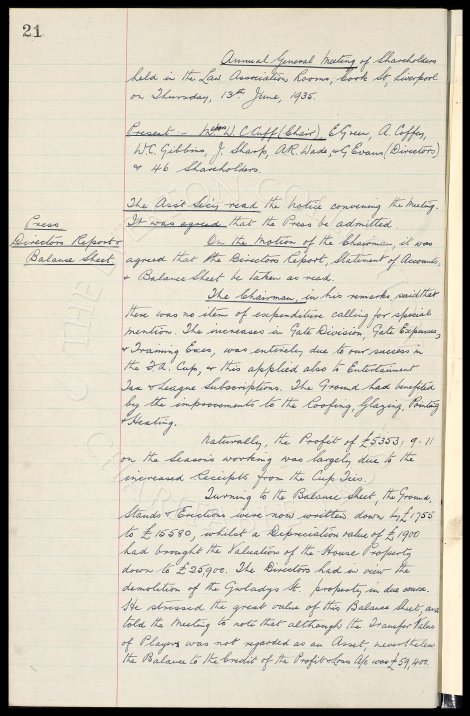 21
Annual General Meeting of Shareholders
held in the Law Association Rooms, Cook St, Liverpool
on Thursday, 13th June, 1935.
Present :- W. C. Cuff, (Chair), E Green, A. Coffey,
W. C. Gibbins, J. Sharp, A.R. Wade, & G Evans (Directors)
& 46 Shareholders.
The Ass't Sec'y read the notice convening the Meeting.
Press
It was agreed that the Press be admitted.
Directors Report &
On the Motion of the Chairman, it was
Balance Sheet
agreed that the Directors Report, Statement of Accounts,
& Balance Sheet be taken as read.
The Chairman, in his remarks, said that
there was no item of expenditure calling for special
mention. The increases in Gate Division, Gate Expenses,
& Training Exes, was entirely due to our success in
the F.A. Cup, & this applied also to Entertainment
Tax & League Subscriptions. The Ground had benefited
by the improvements to the Roofing, Glazing, Painting
& Heating.
Naturally, the Profit of £5353 : 9 . 11
on the Season's working was largely due to the
increased Receipts from the Cup Ties.
Turning to the Balance Sheet, the Ground,
Stands & Erections were now written down by £1755
to £15580, whilst a Depreciation value of £1900
had brought the Valuation of the House Property
down to £25,900. The Directors had in view the
demolition of the Gwladys St. property in due course.
He stressed the great value of this Balance Sheet, and
told the Meeting to note that although the Transfer Value
of Players was not regarded as an Asset, nevertheless
the Balance to the Credit of the Profit & Loss A/c was £59,400.